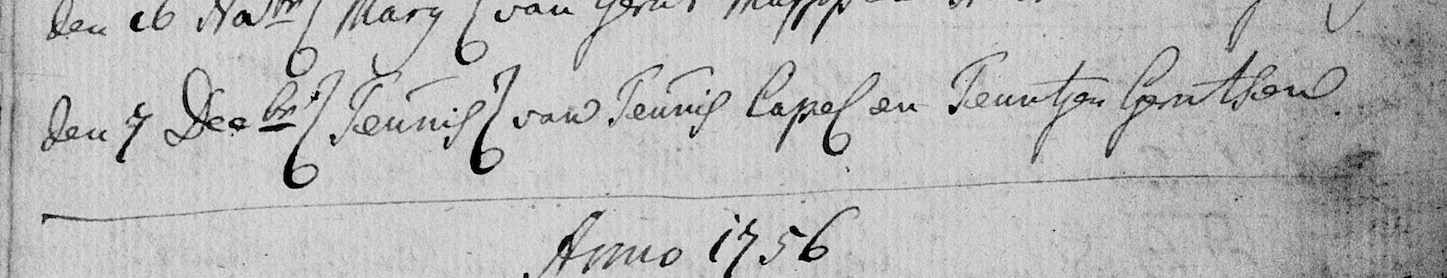 den 16 Nobr { Mary { van Gerrit
den 7 Decbr { Teunis { van Teunis Capel en Teuntjen Gerritsen
Anno 1756